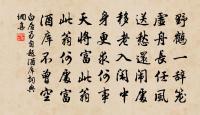 野鶴一辭籠
虛舟長任風
送愁還鬧處
移老入閑中
身更求何事
天將富此翁
此翁何處富
酒庫不曾空
白居易自題酒庫詞典
網喜